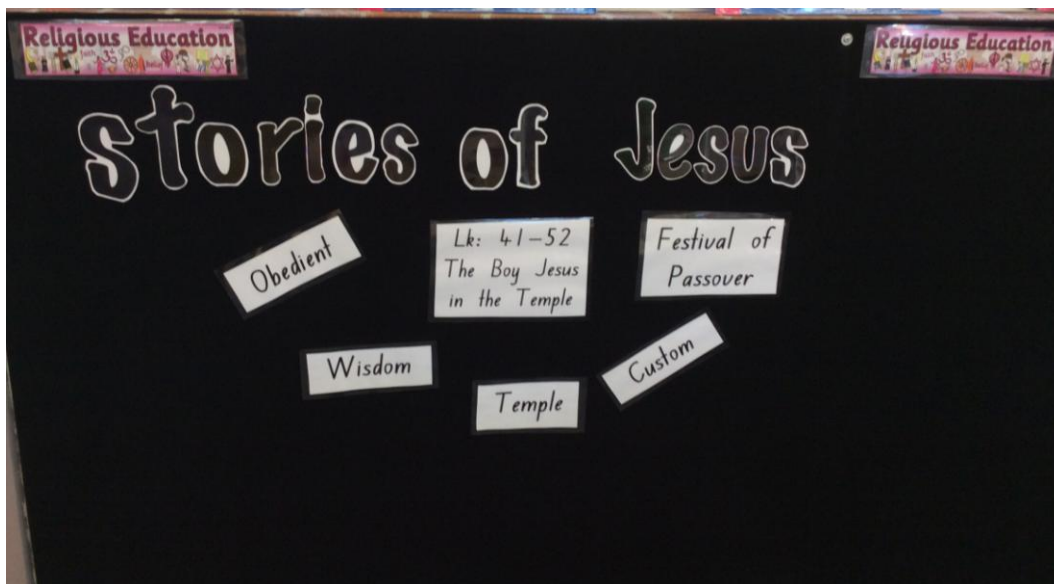 Religious Education
Religious Education
stories of Jesus
Obedient
Lk: 41-52
The Boy Jesus
in the Temple
Festival of
Passover
Wisdom
Custom
Temple